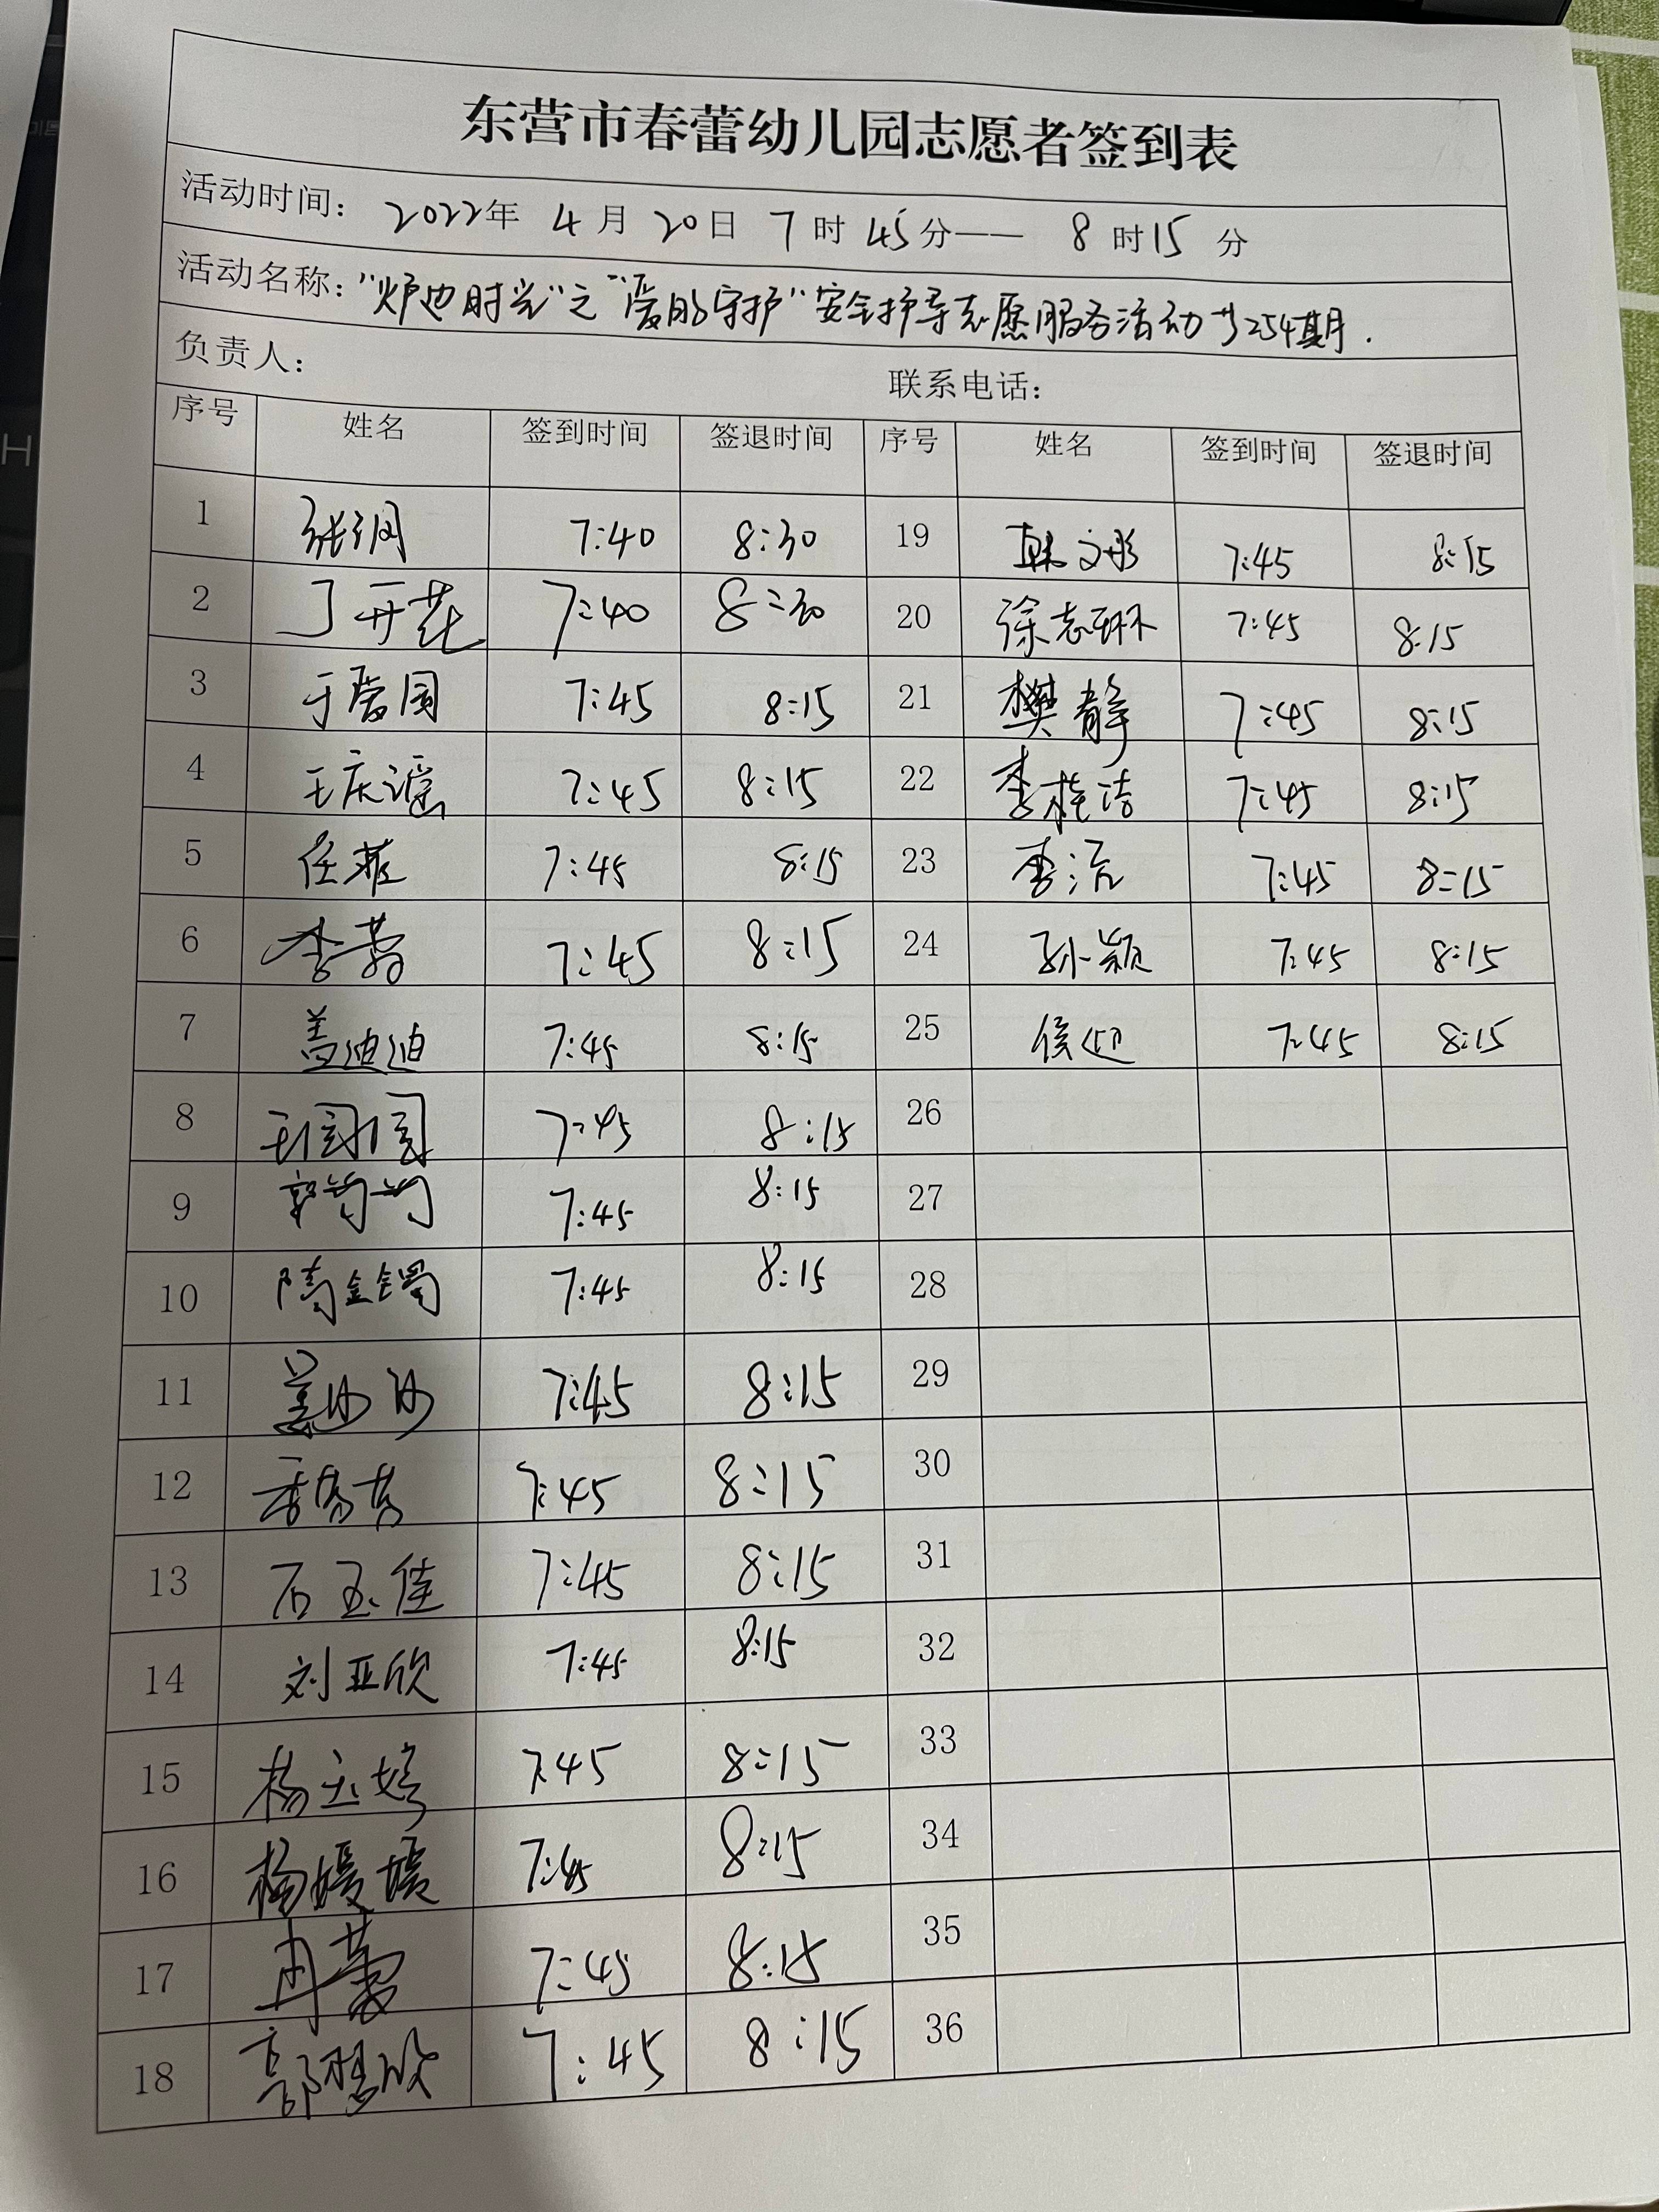 东营市春蕾幼儿园志愿者签到表
活动时间： 2022年 4月 20日 7时 45分—— 8时15分
活动名称：“炉边时光”之“爱的守护”安全护导志愿服务活动 254期.
负责人： 联系电话：
序号 姓名 签到时间 签退时间 序号 姓名 签到时间 签退时间
1 7:40 8:30 19 韩文彤 7:45 8:15
2 丁开花 7:40 8:30 20 徐志琳 7:45 8:15
3 于爱国 7:45 8:15 21 樊静 7:45 8:15
4 王庆谣 7:45 8:15 22 李桂洁 7:45 8:15
5 任菲 7:45 8:15 23 李 7:45 8:15
6 李 7:45 8:15 24 孙颖 7:45 8:15
7 盖迪迪 7:45 8:15 25 侯迎 7:45 8:15
8 7:45 8:15 26
9 郭 7:45 8:15 27
10 隋金 7:45 8:15 28
11 姜沙沙 7:45 8:15 29
12 7:45 8:15 30
13 石玉佳 7:45 8:15 31
14 刘亚欣 7:45 8:15 32
15 杨玉婷 7:45 8:15 33
16 杨媛媛 7:45 8:15 34
17 7:45 8:15 35
18 郭 7:45 8:15 36